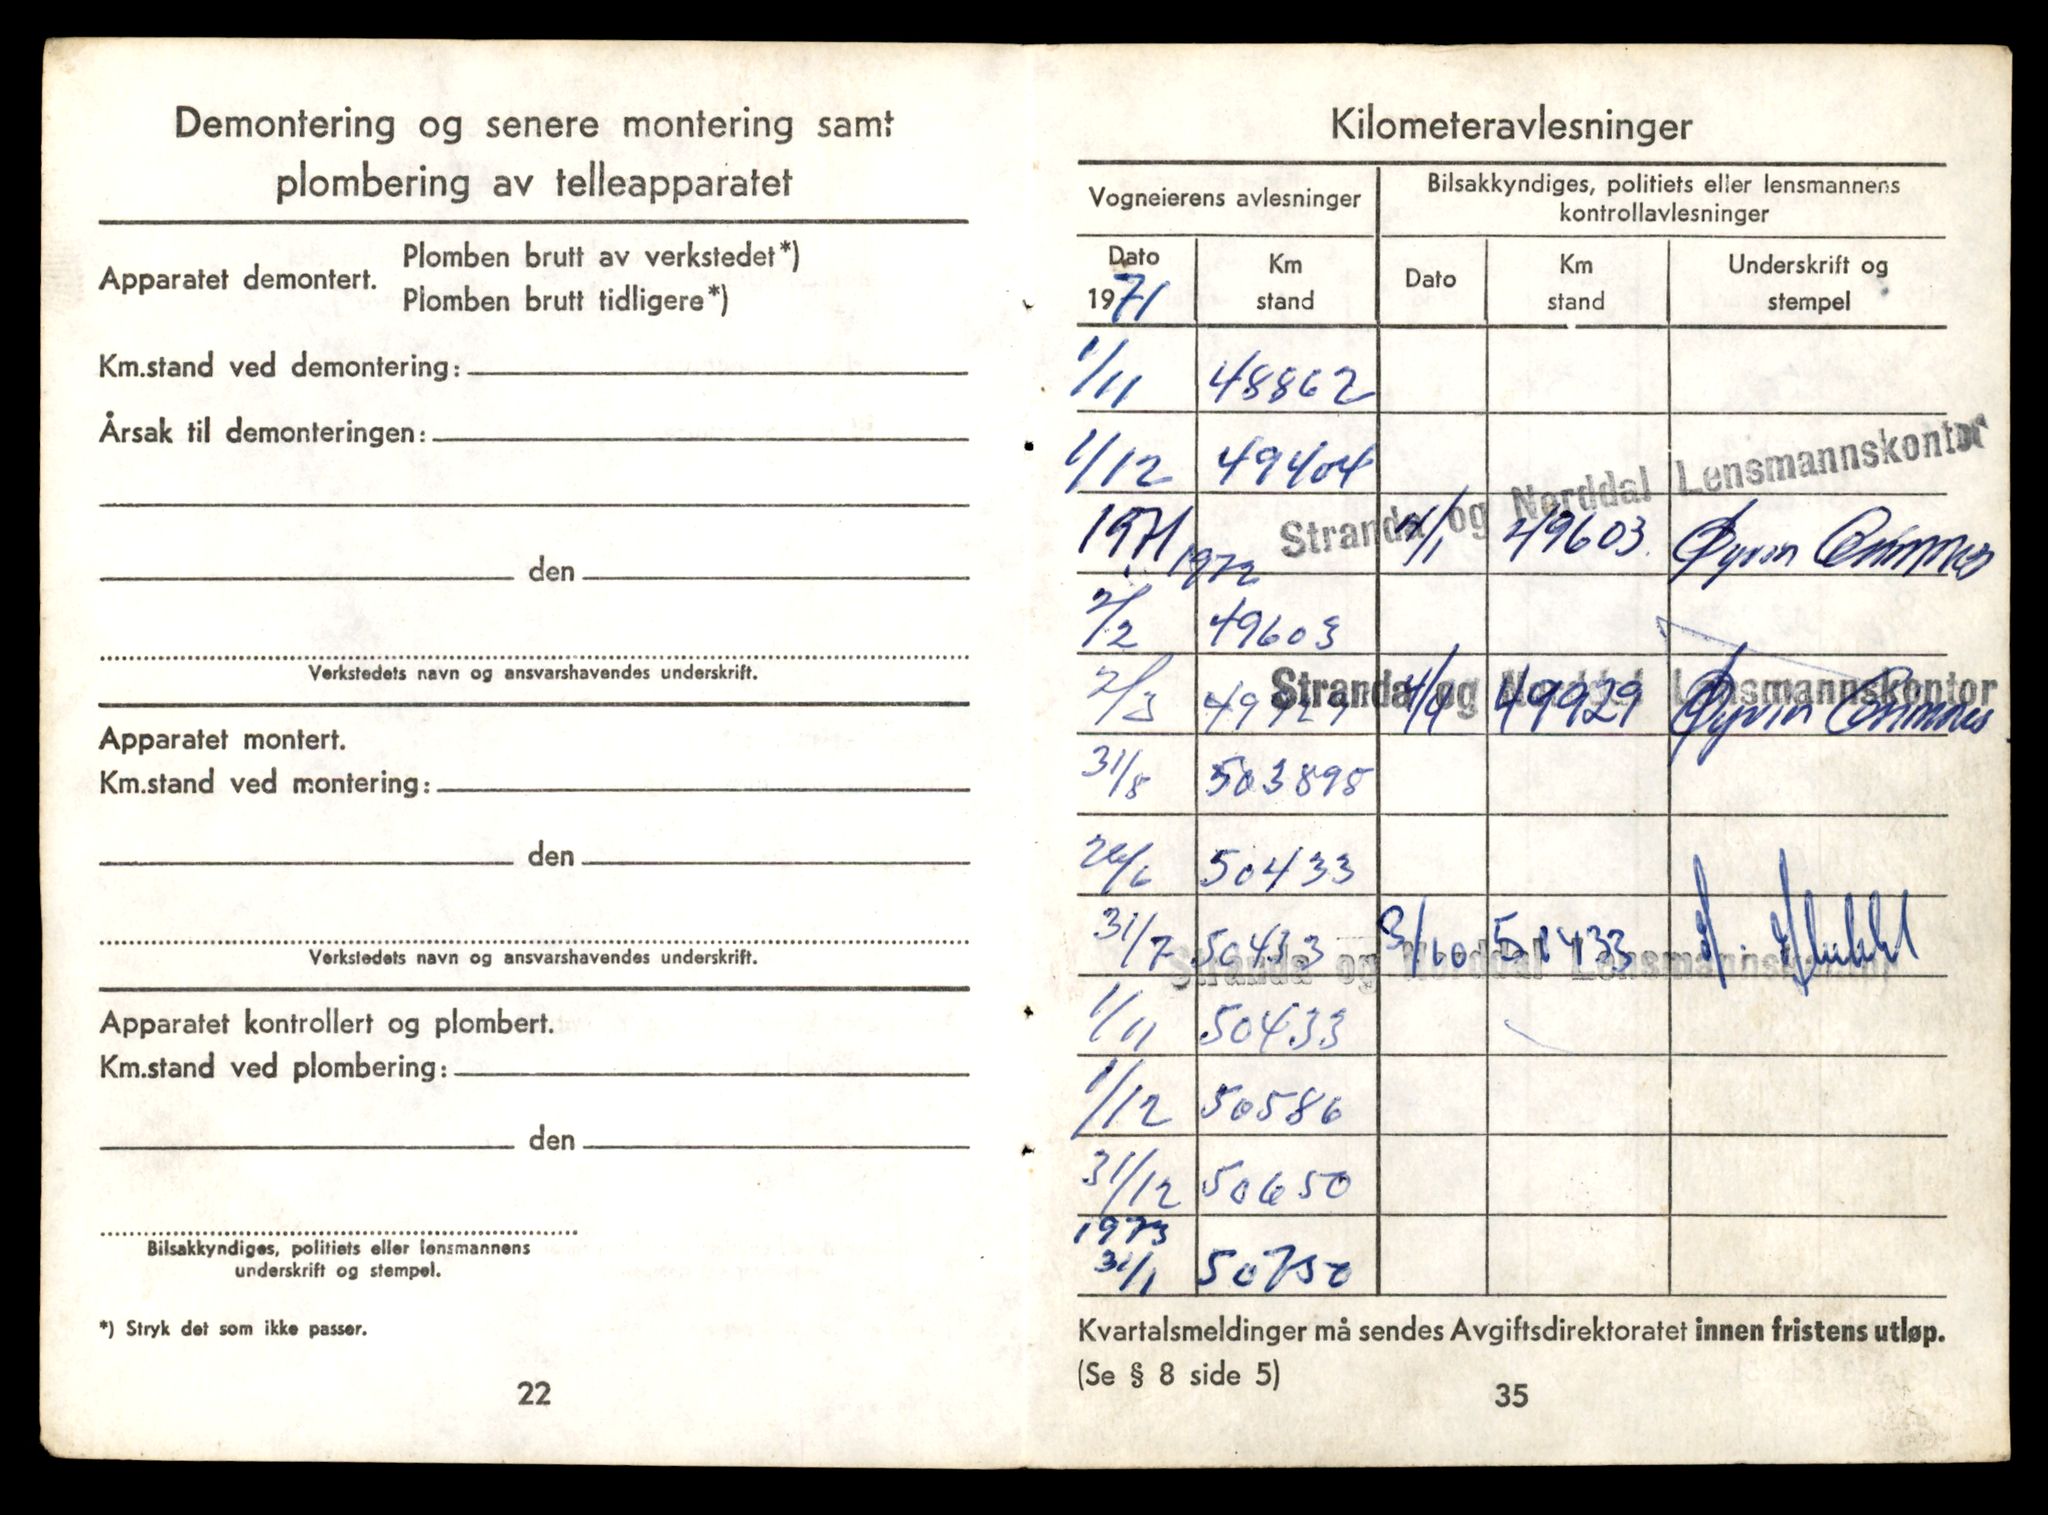 Demontering og senere montering samt
plombering av telleapparatet
Apparatet demontert.
Plomben brutt av verkstedet*)
Plomben brutt tidligere*)
Km.stand ved demontering:
Årsak til demonteringen:
den
Verkstedets navn og ansvarshavendes underskrift.
Apparatet montert.
Km.stand ved montering:
den
Verkstedets navn og ansvarshavendes underskrift.
Apparatet kontrollert og plombert.
Km.stand ved plombering:
den
Bilsakkyndiges, politiets eller lensmannens
underskrift og stempel.
*) Stryk det som ikke passer.
22
Kilometeravlesninger
Vogneierens avlesninger
Bilsakkyndiges, politiets eller lensmannens
kontrollavlesninger
Dato
1971
Km
stand
Dato
Km
stand
Underskrift og
stempel
1/11 48862
1/12 49404
Stranda og Norddal Lensmannskontor
1971 4/1 49603 Øyvin
1972
2/2 49603
Stranda og Norddal Lensmannskontor
2/3 49929 4/4 49929 Øyvin
31/5 503895
26/6 50433
31/7 50433 3/10 50433
Stranda og Norddal Lensmannskontor
1/11 50433
1/12 50586
31/12 50650
1973
31/1 50750
Kvartalsmeldinger må sendes Avgiftsdirektoratet innen fristens utløp.
(Se § 8 side 5)
35